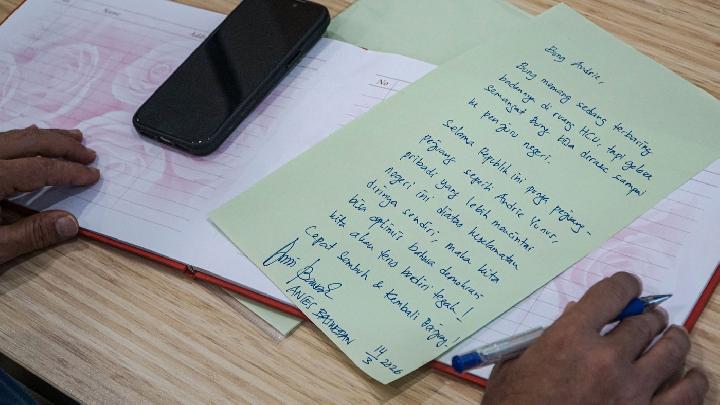 Name
Add
No
Bung Andrie,
Bung memang sedang terbaring
badannya di ruang HCU, tapi gelora
semangat Bung bisa dirasa sampai
ke penjuru negeri.
Selama Republik ini punya pejuang-
pejuang seperti Andrie Yunus,
pribadi yang lebih mencintai
negeri ini diatas keselamatan
dirinya sendiri, maka kita
bisa optimis bahwa demokrasi
kita akan terus berdiri tegak!
Cepat Sembuh & Kembali Berjuang!
ANIES BASWEDAN
14/3 2026